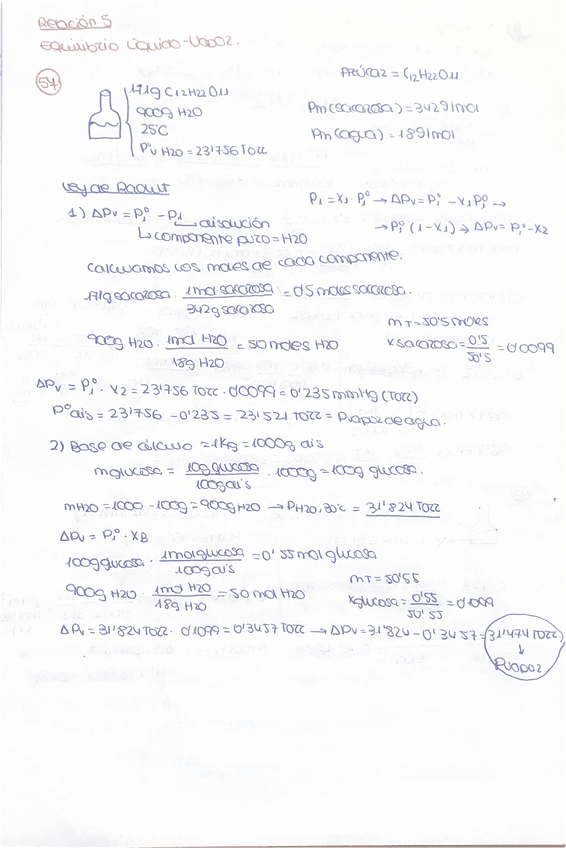 Relación 5
Equilibrio Líquido-Vapor.
57
171g C12H22O11
900g H2O
25C
P°v H2O = 23'756 Torr
Azúcar = C12H22O11
Pm(sacarosa) = 342g/mol
Pm(agua) = 18g/mol
Ley de Raoult
P1 = X1 · P1° → ΔPv = P1° - X1P1° →
→ P1° (1 - X1) → ΔPv = P1° · X2
1) ΔPv = P1° - P1
disolución
componente puro = H2O
Calculamos los moles de cada componente.
171g sacarosa · 1mol sacarosa / 342g sacarosa = 0'5 moles sacarosa.
900g H2O · 1mol H2O / 18g H2O = 50 moles H2O
mT = 50'5 moles
Xsacarosa = 0'5 / 50'5 = 0'0099
ΔPv = P1° · X2 = 23'756 Torr · 0'0099 = 0'235 mmHg (Torr)
P°dis = 23'756 - 0'235 = 23'521 Torr = Pvapor de agua.
2) Base de cálculo = 1Kg = 1000g dis
mglucosa = 10g glucosa / 100g dis · 1000g = 100g glucosa.
mH2O = 1000 - 100g = 900g H2O → PH2O, 30°C = 31'824 Torr
ΔPv = P1° · XB
100g glucosa · 1mol glucosa / 100g dis = 0'55 mol glucosa
900g H2O · 1mol H2O / 18g H2O = 50 mol H2O
mT = 50'55
Xglucosa = 0'55 / 50'55 = 0'1099
ΔPv = 31'824 Torr · 0'1099 = 0'3457 Torr → ΔPv = 31'824 - 0'3457 = 31'474 Torr
Pvapor